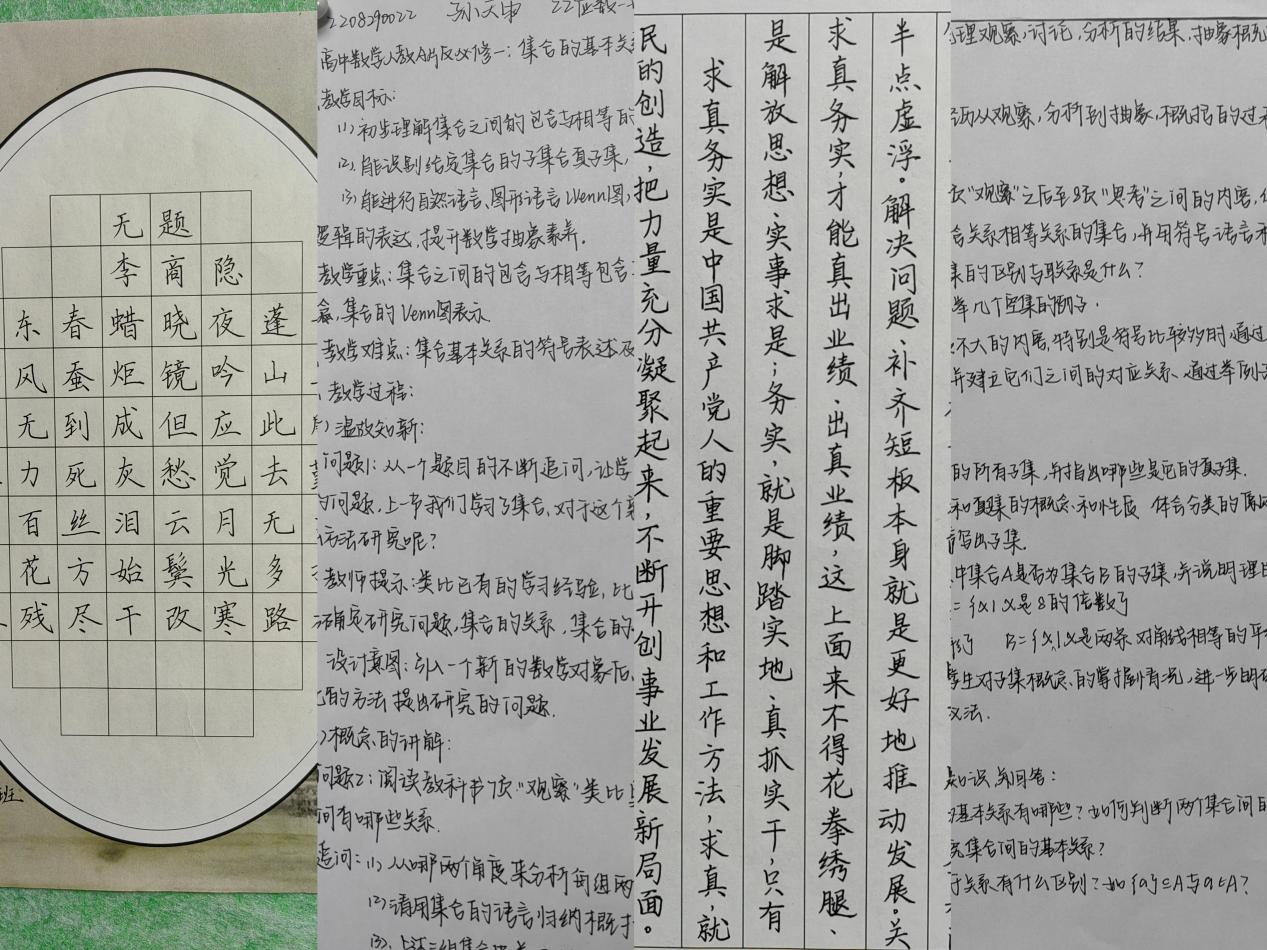 无题
李商隐
东风无力百花残
春蚕到死丝方尽
蜡炬成灰泪始干
晓镜但愁云鬓改
夜吟应觉月光寒
蓬山此去无多路
班
2208290022 孙天申 22应数一
高中数学人教A版必修一:集合的基本关
教学目标:
(1)初步理解集合之间的包含与相等的
(2)能识别给定集合的子集合真子集,
(3)能进行自然语言、图形语言(Venn图,
逻辑的表达,提升数学抽象素养.
教学重点:集合之间的包含与相等包含
集合的Venn图表示
教学难点:集合基本关系的符号表述及
教学过程:
)温故知新:
问题1:从一个题目的不断追问,让学
问题.上一节我们学习了集合,对于这个
方法研究呢?
教师提示:类比已有的学习经验,比
确定研究问题,集合的关系,集合的
设计意图:引入一个新的数学对象后,
的方法提出研究的问题.
)概念的讲解:
问题2:阅读教科书7页"观察"类比
间有哪些关系.
追问:(1)从哪两个角度来分析每组两
(2)请用集合的语言归纳概括
民的创造,把力量充分凝聚起来,不断开创事业发展新局面。
求真务实是中国共产党人的重要思想和工作方法,求真,就
是解放思想、实事求是;务实,就是脚踏实地、真抓实干,只有
求真务实,才能真出业绩、出真业绩,这上面来不得花拳绣腿、
半点虚浮。解决问题、补齐短板本身就是更好地推动发展。关
理观察,讨论,分析的结果,抽象概
历从观察,分析到抽象,概括的过
页"观察"之后至8页"思考"之间的内容,
含关系相等关系的集合,并用符号语言
集的区别与联系是什么?
举几个空集的例子.
不大的内容,特别是符号比较多时,通过
并建立它们之间的对应关系、通过举例
的所有子集,并指出哪些是它的真子集.
和真集的概念和性质 体会分类的
写出子集.
中集合A是否为集合B的子集,并说明理
={x|x是8的倍数}
B={x|x是两条对角线相等的平
学生对子集概念的掌握到情况,进一步明
义法.
知识点回答:
基本关系有哪些?如何判断两个集合间的
究集合间的基本关系?
于关系有什么区别?如{a}⊆A与a∈A?